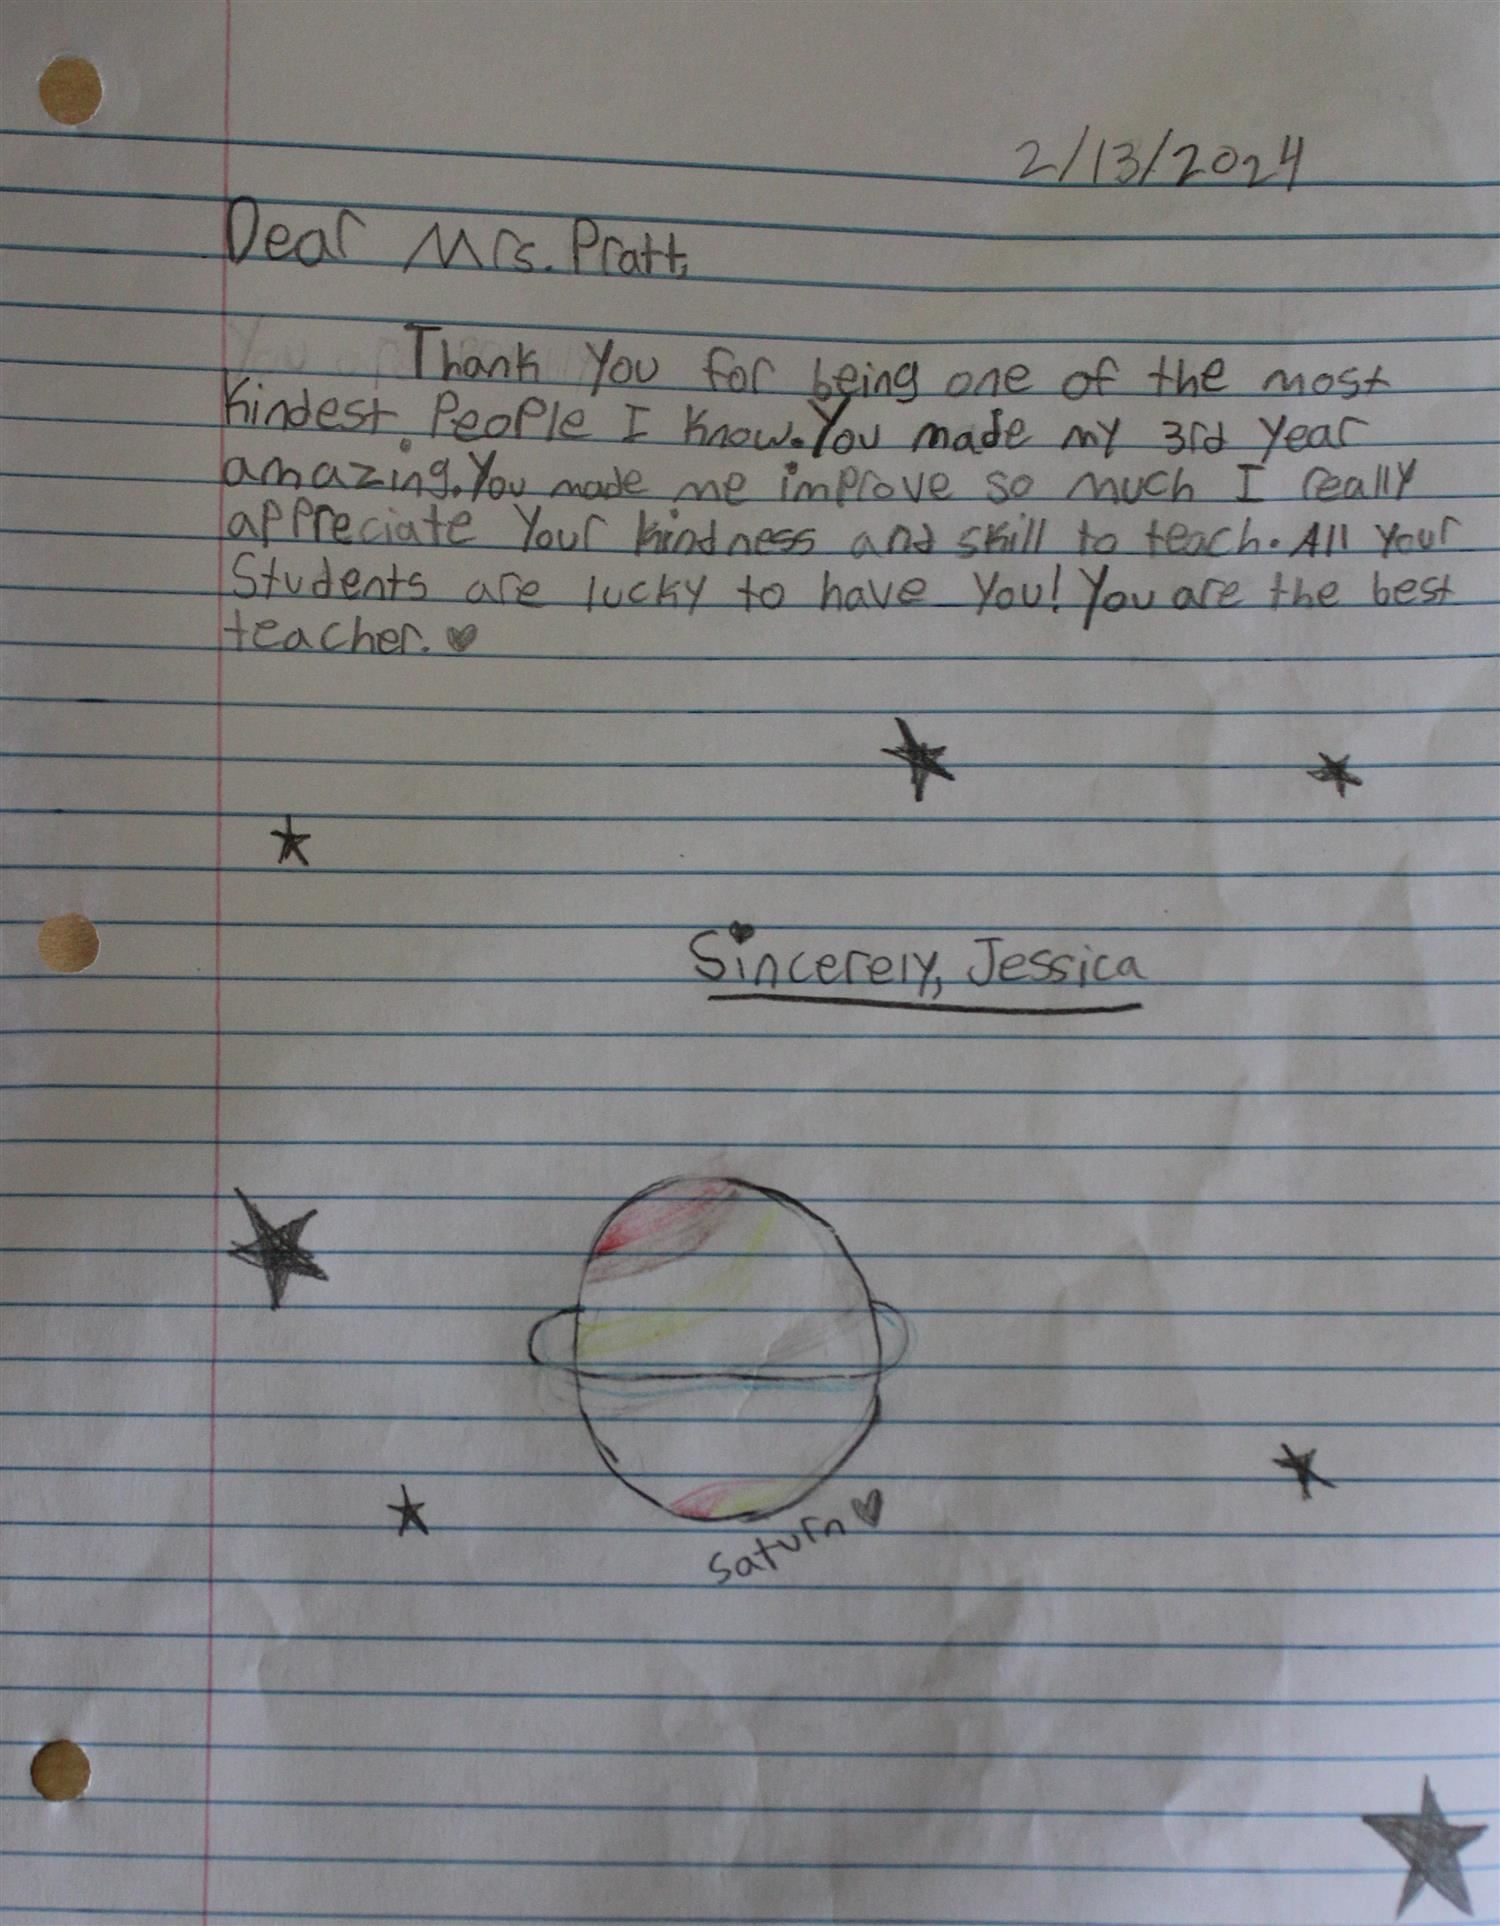 2/13/2024
Dear Mrs. Pratt,
Thank You for being one of the most
kindest People I know. You made my 3rd year
amazing. You made me improve so much I really
appreciate Your kindness and skill to teach. All Your
Students are lucky to have You! You are the best
teacher. ♥
Sincerely, Jessica
Saturn ♥